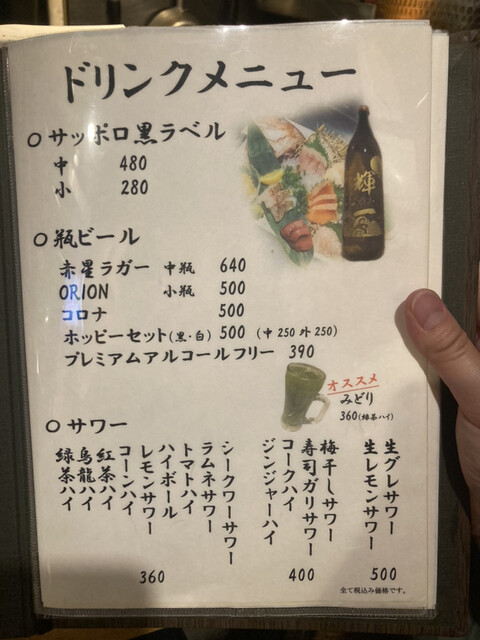 ドリンクメニュー
○サッポロ黒ラベル
中 480
小 280
○瓶ビール
赤星ラガー 中瓶 640
ORION 小瓶 500
コロナ 500
ホッピーセット(黒・白) 500 (中250 外250)
プレミアムアルコールフリー 390
オススメ
みどり
360(緑茶ハイ)
○サワー
生グレサワー
生レモンサワー
500
梅干しサワー
寿司ガリサワー
コークハイ
ジンジャーハイ
400
シークワーサワー
ラムネサワー
トマトハイ
ハイボール
レモンサワー
コーンハイ
紅茶ハイ
烏龍ハイ
緑茶ハイ
360
全て税込み価格です。